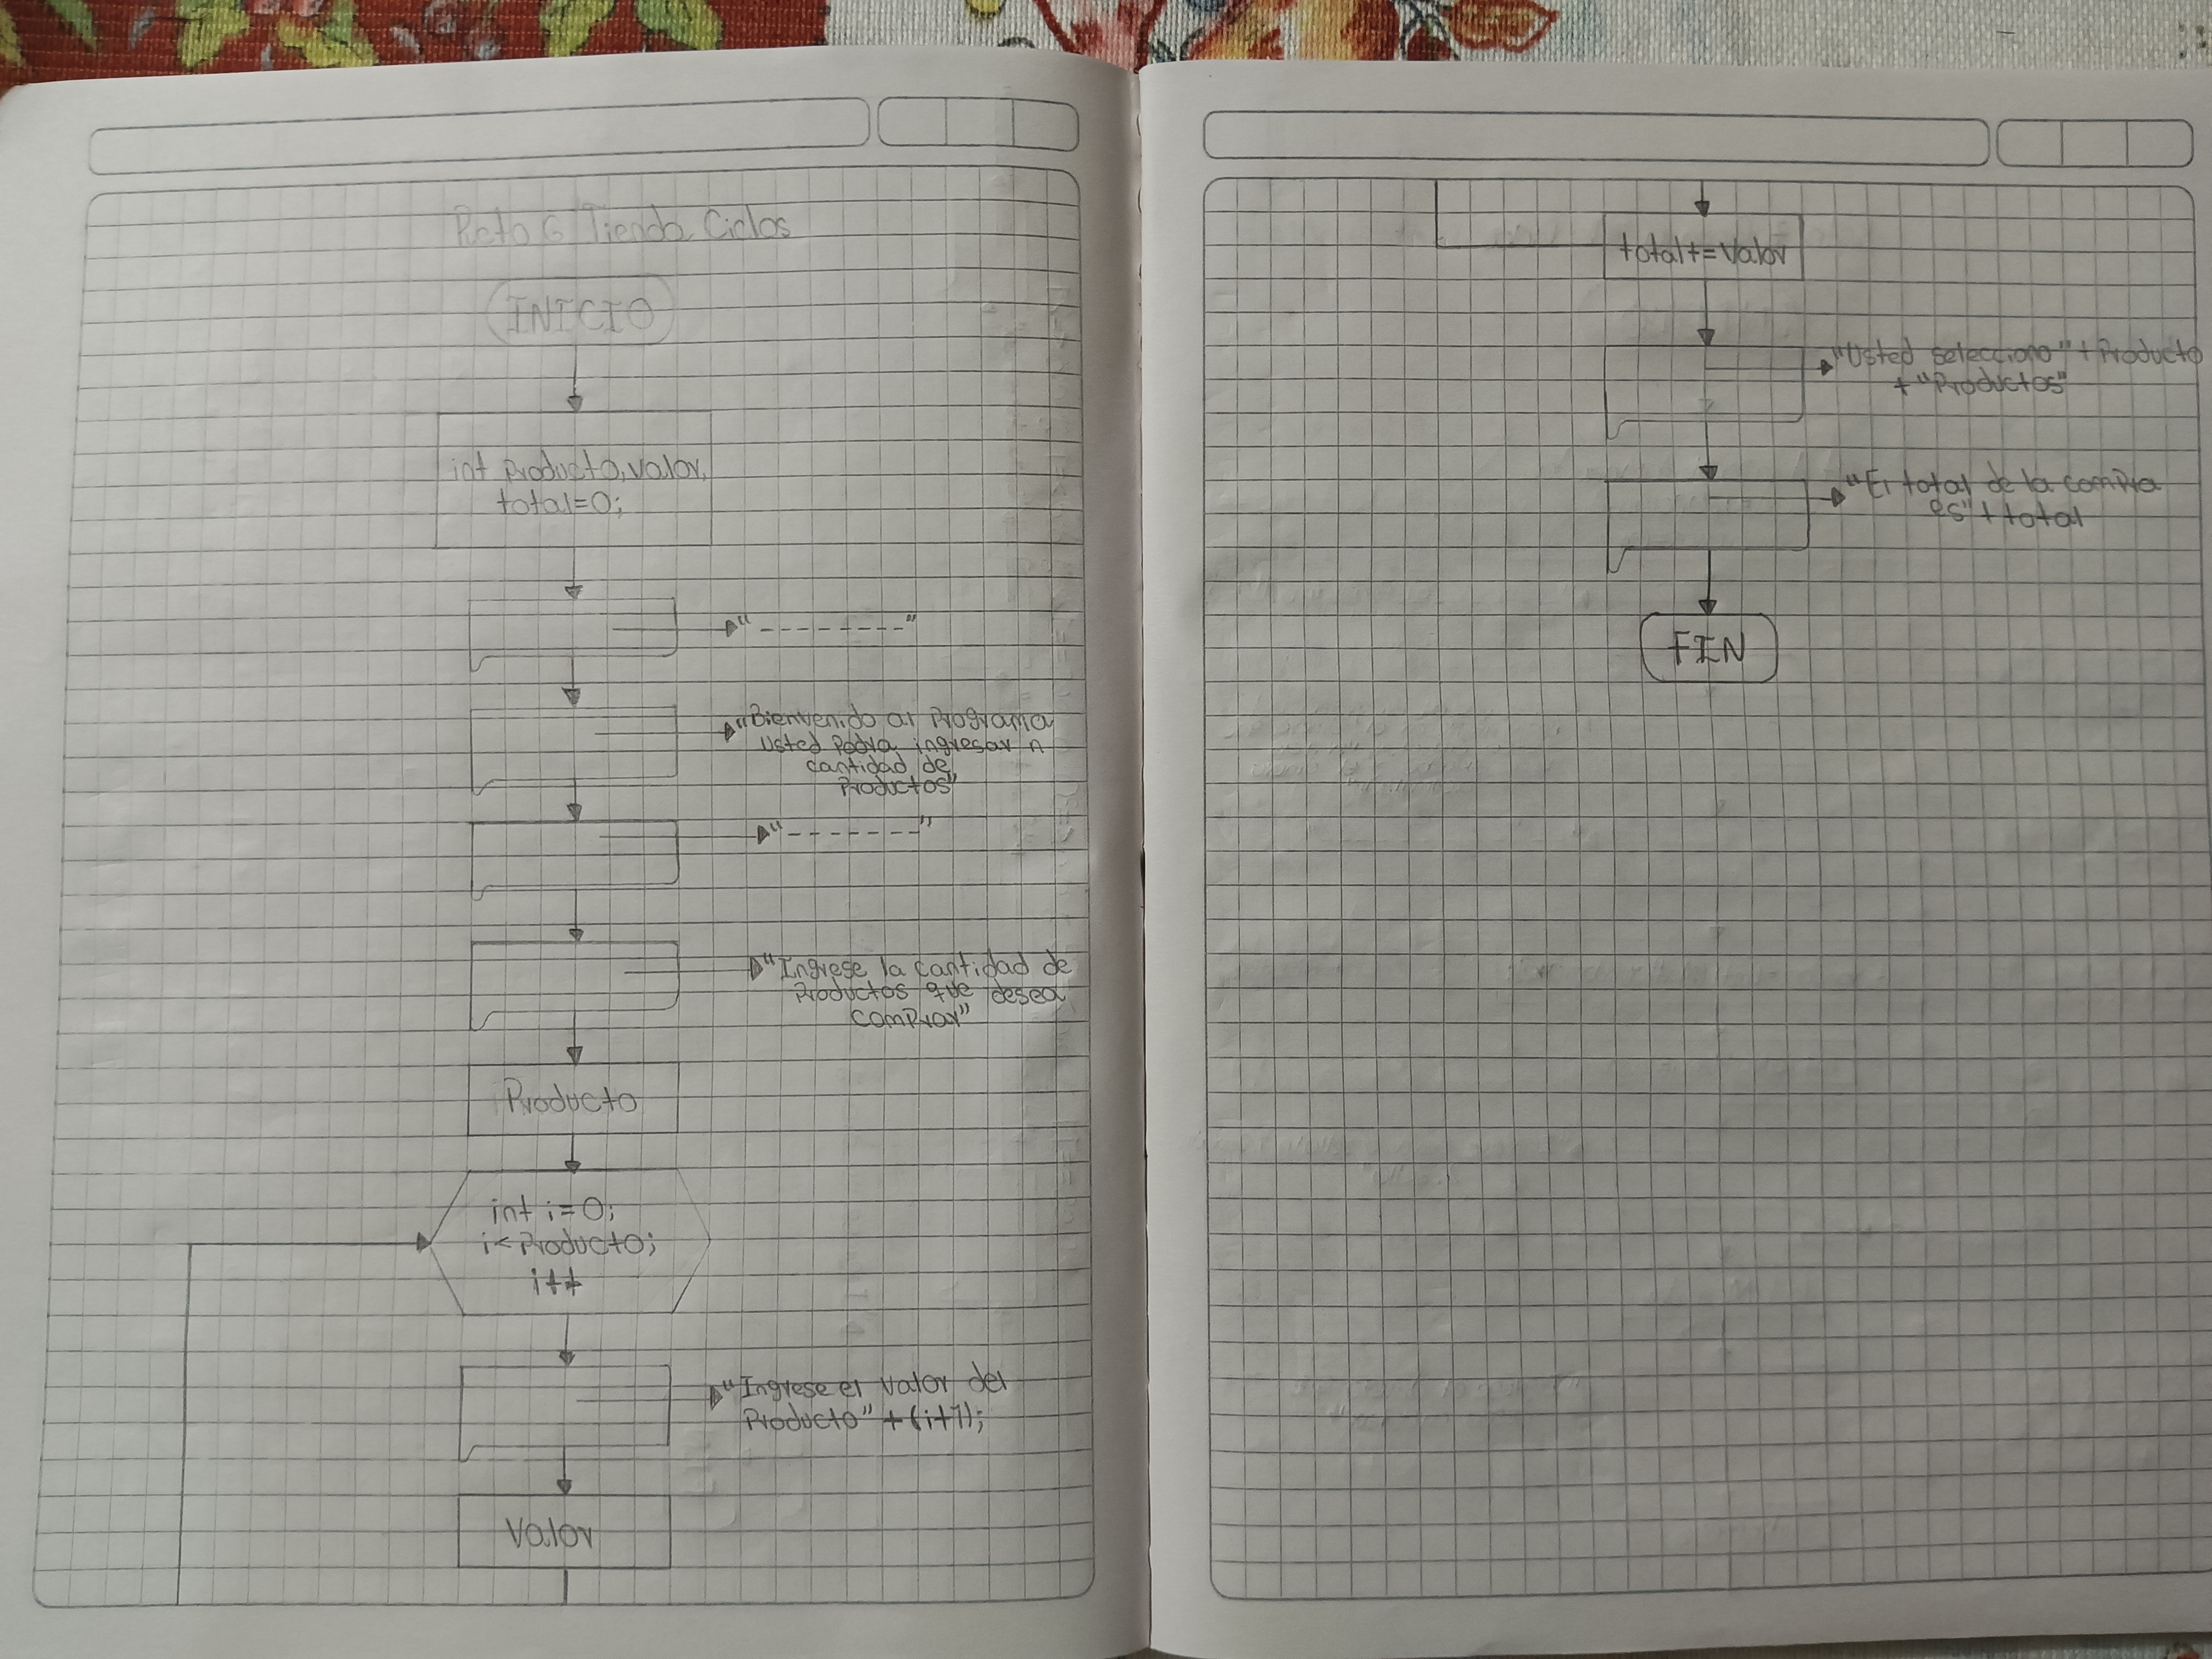 Reto 6 Tienda Ciclos
INICIO
int Producto, valor,
total=0;
"--------"
"Bienvenido al Programa
Usted Podra ingresar n
cantidad de
Productos"
"-------"
"Ingrese la cantidad de
Productos que desea
comprar"
Producto
int i=0;
i<Producto;
i++
"Ingrese el valor del
Producto" + (i+1);
Valor
total+=Valor
"Usted selecciono" + Producto
+ "Productos"
"El total de la compra
es" + total
FIN